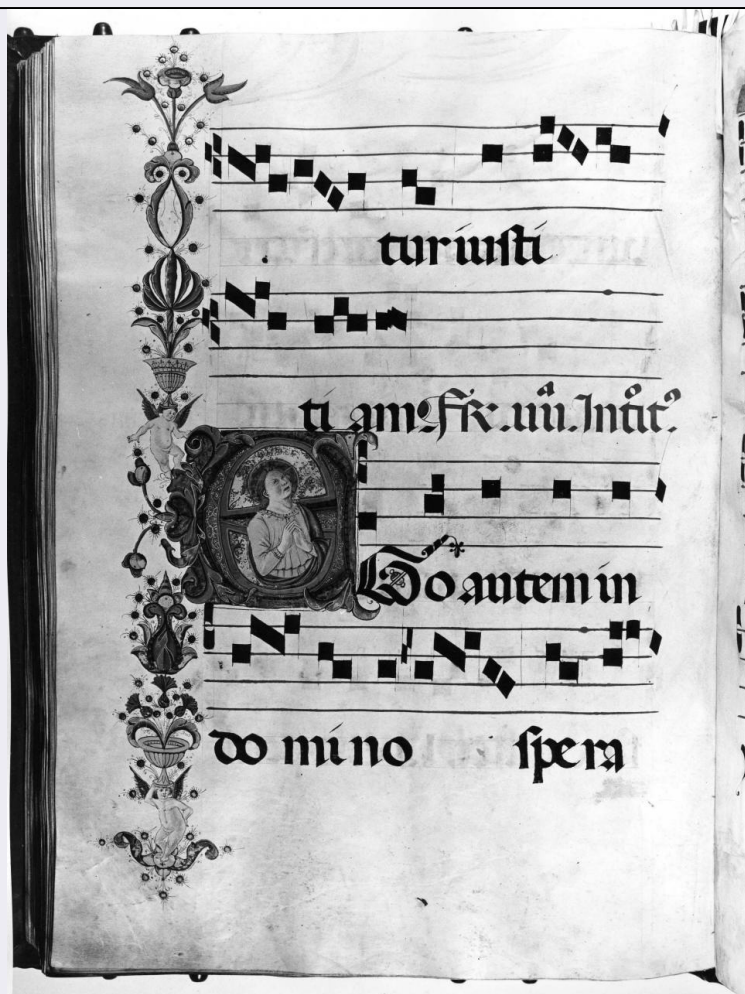 tur iusti
ti am. Fr. iiii. Introit.
EGo autem in
do mi no spera